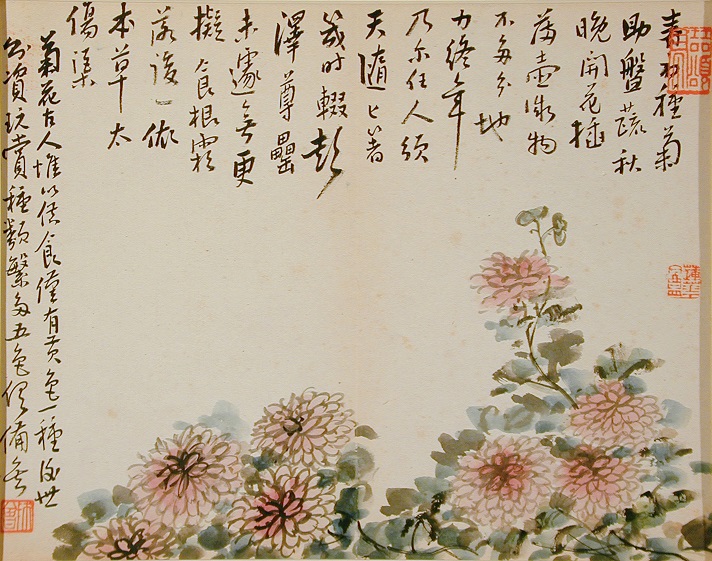 春初種菊
助盤蔬秋
晚開花插
酒壺微物
不多分地
力終年
乃尔任人須
天隨匕箸
幾時輟彭
澤尊罍
未遽無更
擬食根
落後一依
本草太
傷渠
菊花古人惟以供食僅有黃色一種後世
玩賞種類繁多五色俱備矣